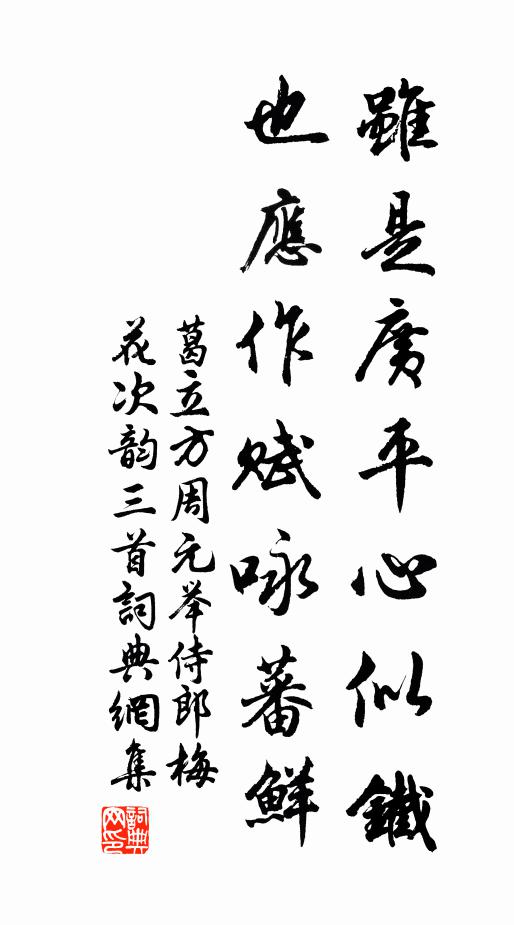 雖是廣平心似鐵
也應作賦咏蕃鮮
葛立方周元举侍郎梅
花次韵三首詞典網集
詞典网印